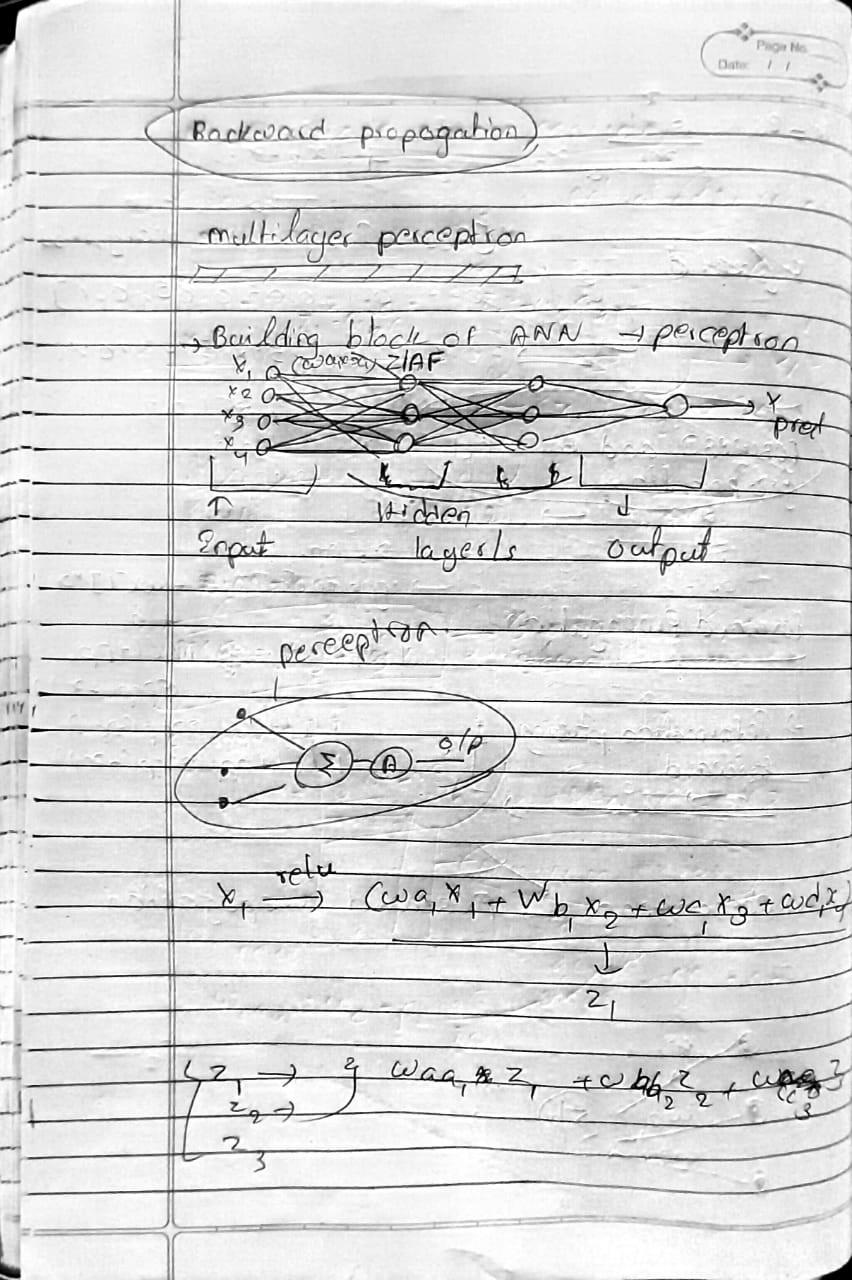 Page No.
Date: / /
Backward propagation
multilayer perceptron
→ Building block of ANN → perceptron
x1 Z|AF
x2
x3 Y pred
x4
Hidden
Input layer/s output
perceptron
Σ A o/p
relu
x1 → (wa1x1 + Wb1x2 + wc1x3 + wd1x4
↓
z1
z1 → waa1 z1 + wbb2 z2 +
z2 →
z3